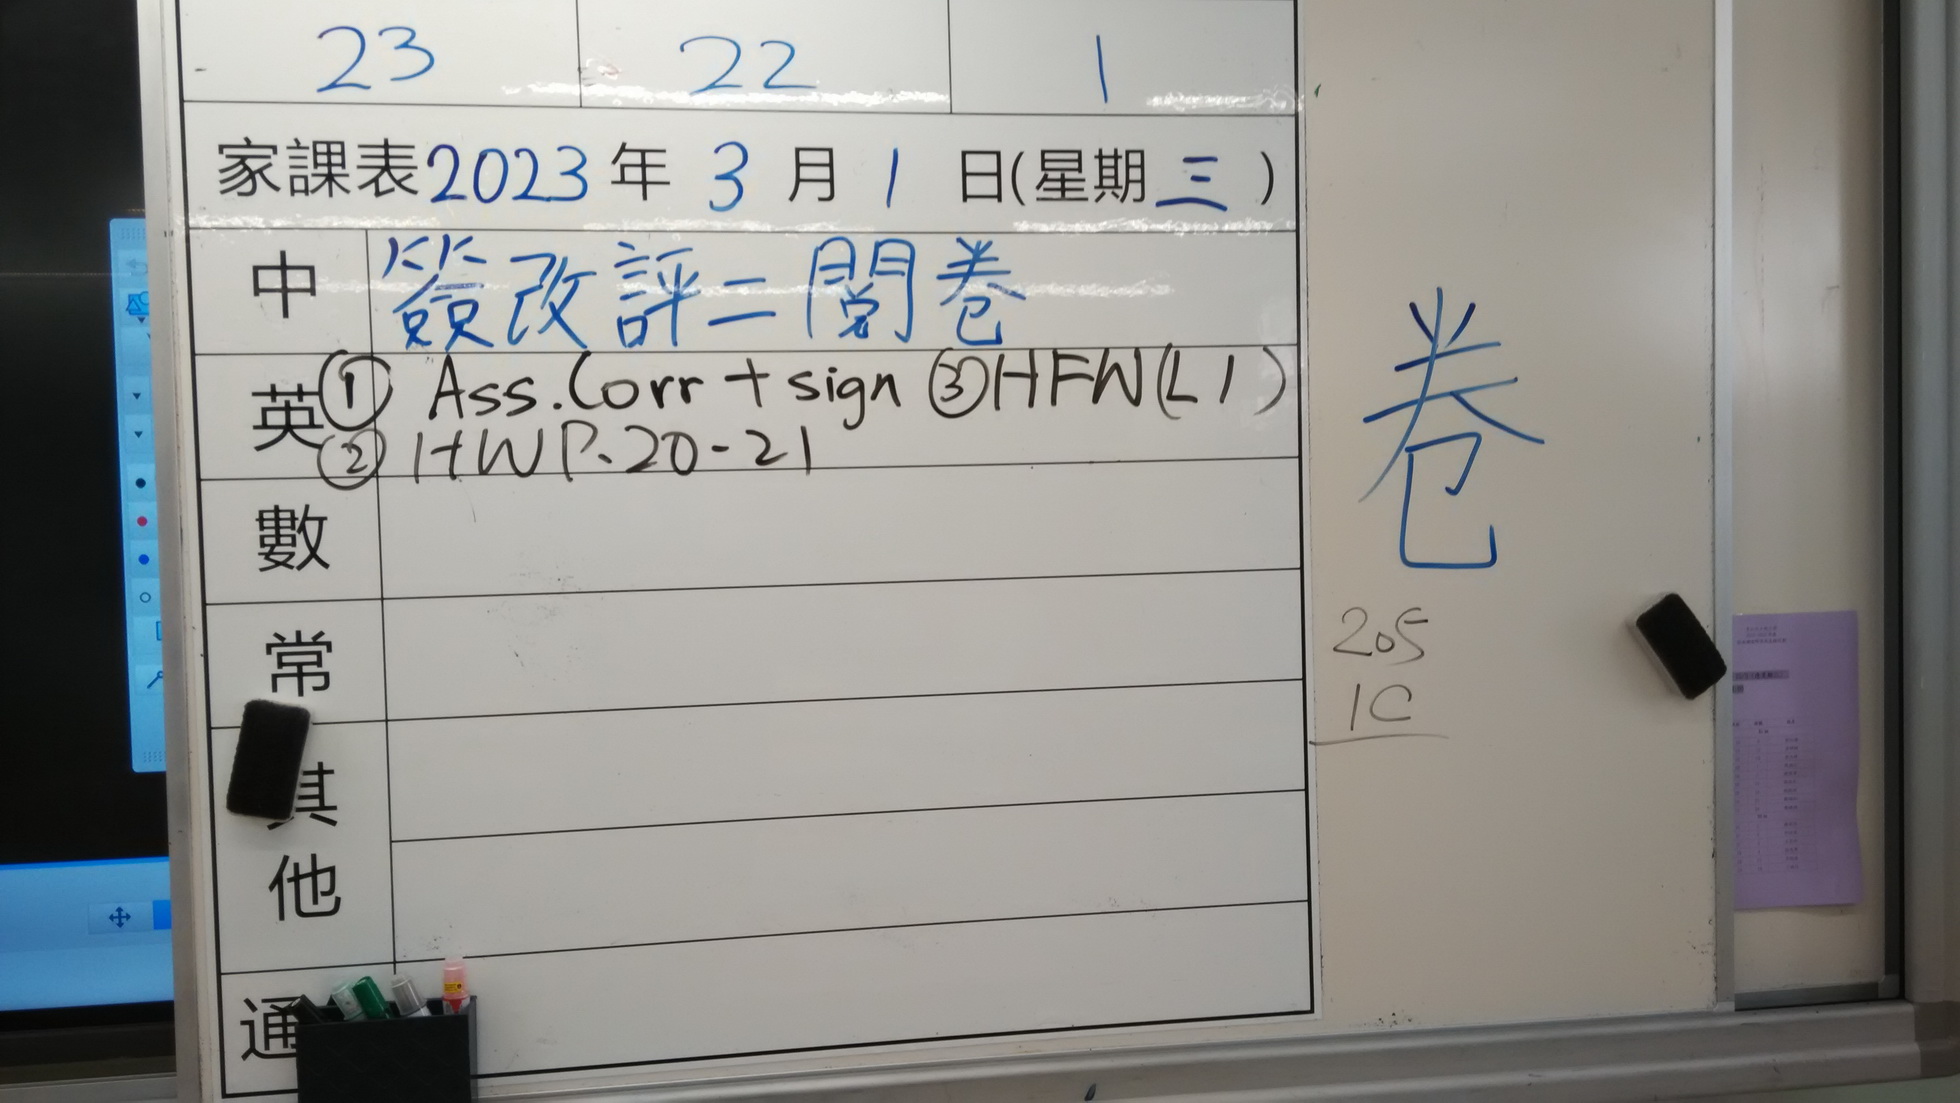 23 22 1
家課表2023年3月1日(星期三)
中 簽改評二閱卷
英 ① Ass. Corr + sign ③HFW(L1)
② HW P.20-21
數
常
其
他
通
卷
205
1C